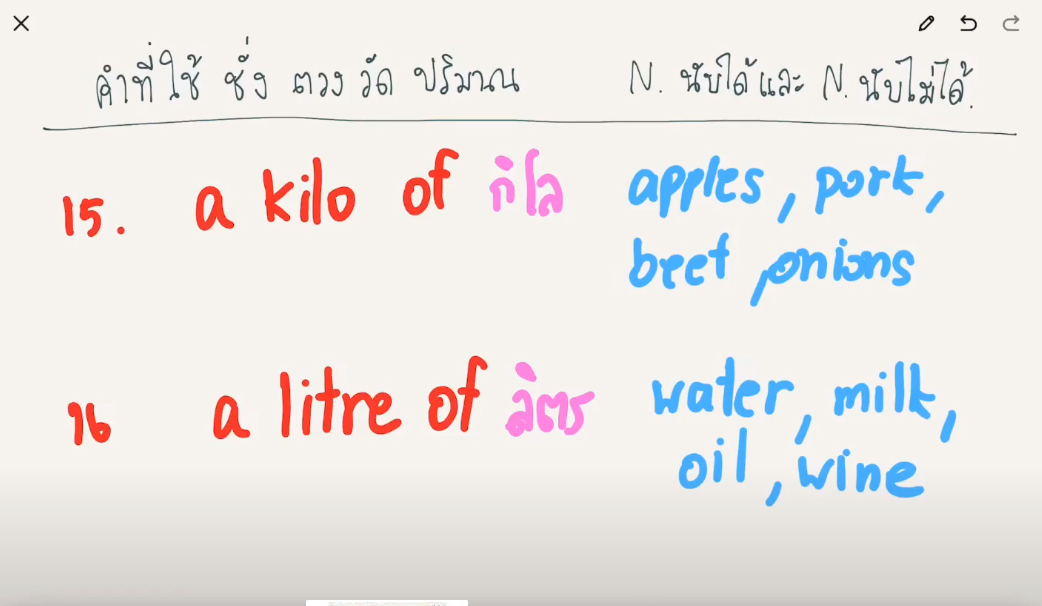 คำที่ใช้ ชั่ง ตวง วัด ปริมาณ N. นับได้และ N. นับไม่ได้.
15. a kilo of กิโล apples, pork,
beef, onions
16 a litre of ลิตร water, milk,
oil, wine